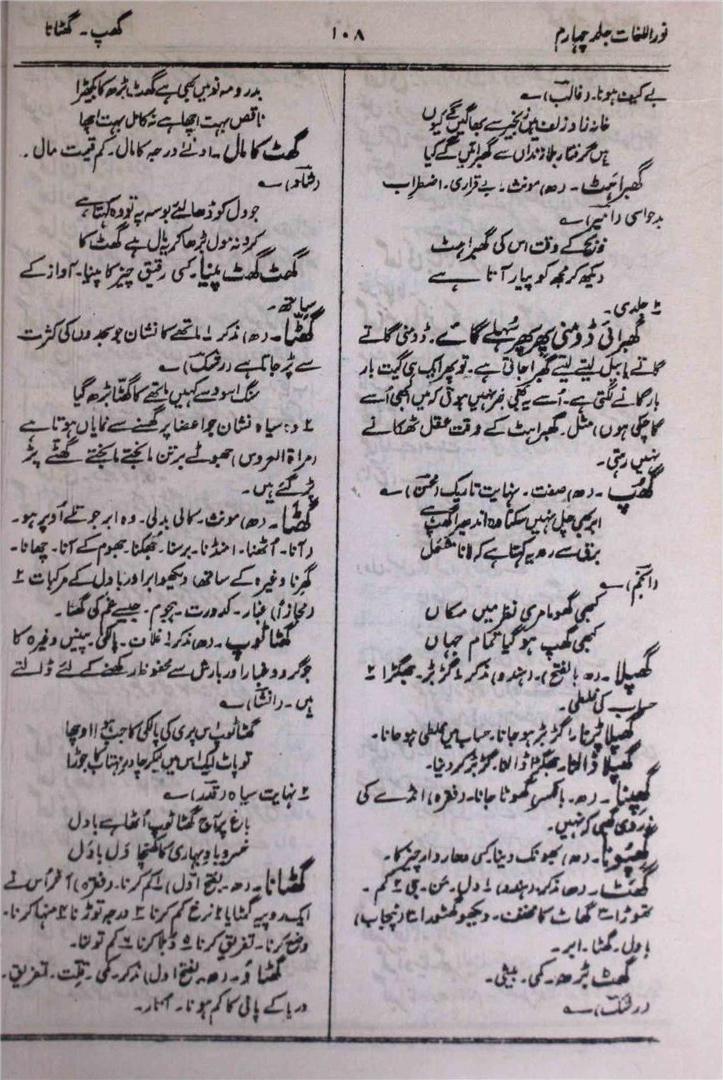 نور اللغات جلد چہارم
۱۰۸
گھپ - گھٹانا
بے کیف ہونا۔ (غالب) ؎
خانہ زادِ زلف ہیں زنجیر سے بھاگیں گے کیوں
ہیں گرفتارِ بلا زنداں سے گھبرائیں گے کیا
گھبراہٹ۔ (ھ) مونث۔ بے قراری۔ اضطراب
بدحواسی (امیر) ؎
ذبح کے وقت اس کی گھبراہٹ
دیکھ کر مجھ کو پیار آتا ہے
۲ جلدی۔
گھبرائی ڈومنی پھر پھر سہلے گائے۔ ڈومنی گاتے
گاتے جب گھبرا جاتی ہے۔ تو پھر ایک ہی گیت بار
بار گانے لگتی ہے۔ اُسے یہ بھی خبر نہیں ہوتی کہ میں ابھی اُسے
گا چکی ہوں) مثل۔ گھبراہٹ کے وقت عقل ٹھکانے
نہیں رہتی۔
گھپ۔ (ھ) صفت۔ نہایت تاریک (محسن) ؎
ابر بھی چل نہیں سکتا وہ اندھیرا گھپ ہے
برق سے رعد یہ کہتا ہے کہ لانا مشعل
(انجم) ؎
کبھی گھوما مری نظر میں مکاں
کبھی گھپ ہو گیا تمام جہاں
گھپلا۔ (ھ۔ بالفتح)۔ (ہندو) مذکر ۱ گڑبڑ۔ جھگڑا ۲
حساب کی غلطی۔
گھپلا پڑنا۔ گڑبڑ ہو جانا۔ حساب میں غلطی ہو جانا۔
گھپلا ڈالنا۔ جھگڑا ڈالنا۔ گڑبڑ کر دینا۔
گھپنا۔ (ھ۔ بالکسر) گھوٹا جانا۔ (فقرہ) انڈے کی
زردی گھپی کہ نہیں۔
گھپونا۔ (ھ) بھونک دینا کسی دھاردار چیز کا۔
گھٹ۔ (ھ) مذکر۔ (ہندو) ۱ دل۔ من۔ جی ۲ کم۔
تھوڑا ۳ گھاٹ کا مخفف۔ دیکھو ۴ (پنجاب)
بادل۔ گھٹا۔ ابر۔
گھٹ بڑھ۔ کمی۔ بیشی۔
(رشک) ؎
بدر و مہ نو میں بھی ہے گھٹ بڑھ کا بکھیڑا
ناقص بہت اچھا ہے نہ کامل بہت اچھا
گھٹ کا مال۔ ادنےٰ درجہ کا مال۔ کم قیمت مال۔
(شاد) ؎
جو دل کو ڈھالئے بوسہ پہ تو وہ کہتا ہے
کرو نہ مول بڑھا کر یہ مال ہے گھٹ کا
گھٹ گھٹ پینا۔ کسی رقیق چیز کا پینا۔ آواز کے
ساتھ۔
گھٹّا۔ (ھ) مذکر ۱ ماتھے کا نشان جو سجدوں کی کثرت
سے پڑ جاتا ہے (رشک) ؎
سنگ اسود سے کہیں ماتھے کا گھٹا بڑھ گیا
۲ وہ سیاہ نشان جو اعضا پر گھسنے سے نمایاں ہوتا ہے
(مراۃ العروس) جھوٹے برتن مانجتے مانجتے گھٹے پڑ
پڑ گئے ہیں۔
گھٹا۔ (ھ) مونث۔ کالی بدلی۔ وہ ابر جو تلے اُوپر ہو۔
(آنا۔ اُٹھنا۔ امنڈنا۔ برسنا۔ جھکنا۔ جھوم کے آنا۔ چھانا۔
گھرنا وغیرہ کے ساتھ) دیکھو ابر اور بادل کے مرکبات ۲
(مجازاً) غبار۔ کدورت۔ ہجوم۔ جیسے غم کی گھٹا۔
گھٹا ٹوپ۔ (ھ) مذکر ۱ غلاف۔ پالکی۔ پینس وغیرہ کا
جو گرد و غبار اور بارش سے محفوظ رکھنے کے لئے ڈالتے
ہیں۔ (انشا) ؎
گھٹا ٹوپ اس پری کی پالکی کا جب ہوا اودا
تو پاٹ ایک اس میں لیکر چادر مہتاب کا جوڑا
۲ نہایت سیاہ (قدر) ؎
باغ پر آج گھٹا ٹوپ اُٹھا ہے بادل
خسرو باد بہاری کا کھنچا دَل بادَل
گھٹانا۔ (ھ۔ بفتح اول) ۱ کم کرنا۔ (فقرہ) آخر اُس نے
ایک روپیہ گھٹایا ۲ نرخ کم کرنا ۳ درجہ توڑنا ۴ منہا کرنا۔
وضع کرنا۔ تفریق کرنا ۵ دُبلا کرنا ۶ کم تولنا۔
گھٹاؤ۔ (ھ۔ بفتح اول) مذکر۔ کمی۔ قلّت۔ تفریق۔
دریا کے پانی کا کم ہونا۔ اُتار۔